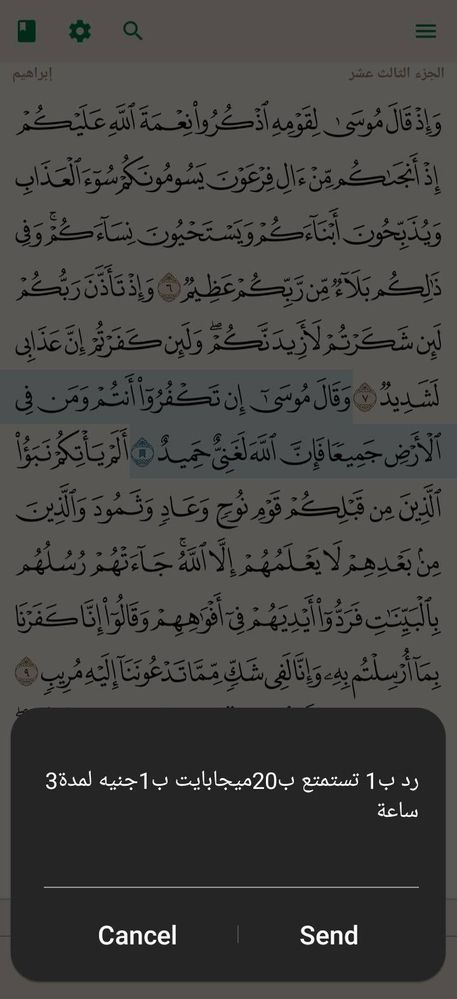 الجزء الثالث عشر
إبراهيم
وَإِذْ قَالَ مُوسَىٰ لِقَوْمِهِ ٱذْكُرُوا۟ نِعْمَةَ ٱللَّهِ عَلَيْكُمْ
إِذْ أَنجَىٰكُم مِّنْ ءَالِ فِرْعَوْنَ يَسُومُونَكُمْ سُوٓءَ ٱلْعَذَابِ
وَيُذَبِّحُونَ أَبْنَآءَكُمْ وَيَسْتَحْيُونَ نِسَآءَكُمْ ۚ وَفِى
ذَٰلِكُم بَلَآءٌ مِّن رَّبِّكُمْ عَظِيمٌ ٦ وَإِذْ تَأَذَّنَ رَبُّكُمْ
لَئِن شَكَرْتُمْ لَأَزِيدَنَّكُمْ ۖ وَلَئِن كَفَرْتُمْ إِنَّ عَذَابِى
لَشَدِيدٌ ٧ وَقَالَ مُوسَىٰٓ إِن تَكْفُرُوٓا۟ أَنتُمْ وَمَن فِى
ٱلْأَرْضِ جَمِيعًا فَإِنَّ ٱللَّهَ لَغَنِىٌّ حَمِيدٌ ٨ أَلَمْ يَأْتِكُمْ نَبَؤُا۟
ٱلَّذِينَ مِن قَبْلِكُمْ قَوْمِ نُوحٍ وَعَادٍ وَثَمُودَ وَٱلَّذِينَ
مِنۢ بَعْدِهِمْ لَا يَعْلَمُهُمْ إِلَّا ٱللَّهُ ۚ جَآءَتْهُمْ رُسُلُهُم
بِٱلْبَيِّنَٰتِ فَرَدُّوٓا۟ أَيْدِيَهُمْ فِىٓ أَفْوَٰهِهِمْ وَقَالُوٓا۟ إِنَّا كَفَرْنَا
بِمَآ أُرْسِلْتُم بِهِۦ وَإِنَّا لَفِى شَكٍّ مِّمَّا تَدْعُونَنَآ إِلَيْهِ مُرِيبٍ ٩
رد ب1 تستمتع ب20ميجابايت ب1جنيه لمدة3
ساعة
Cancel
Send